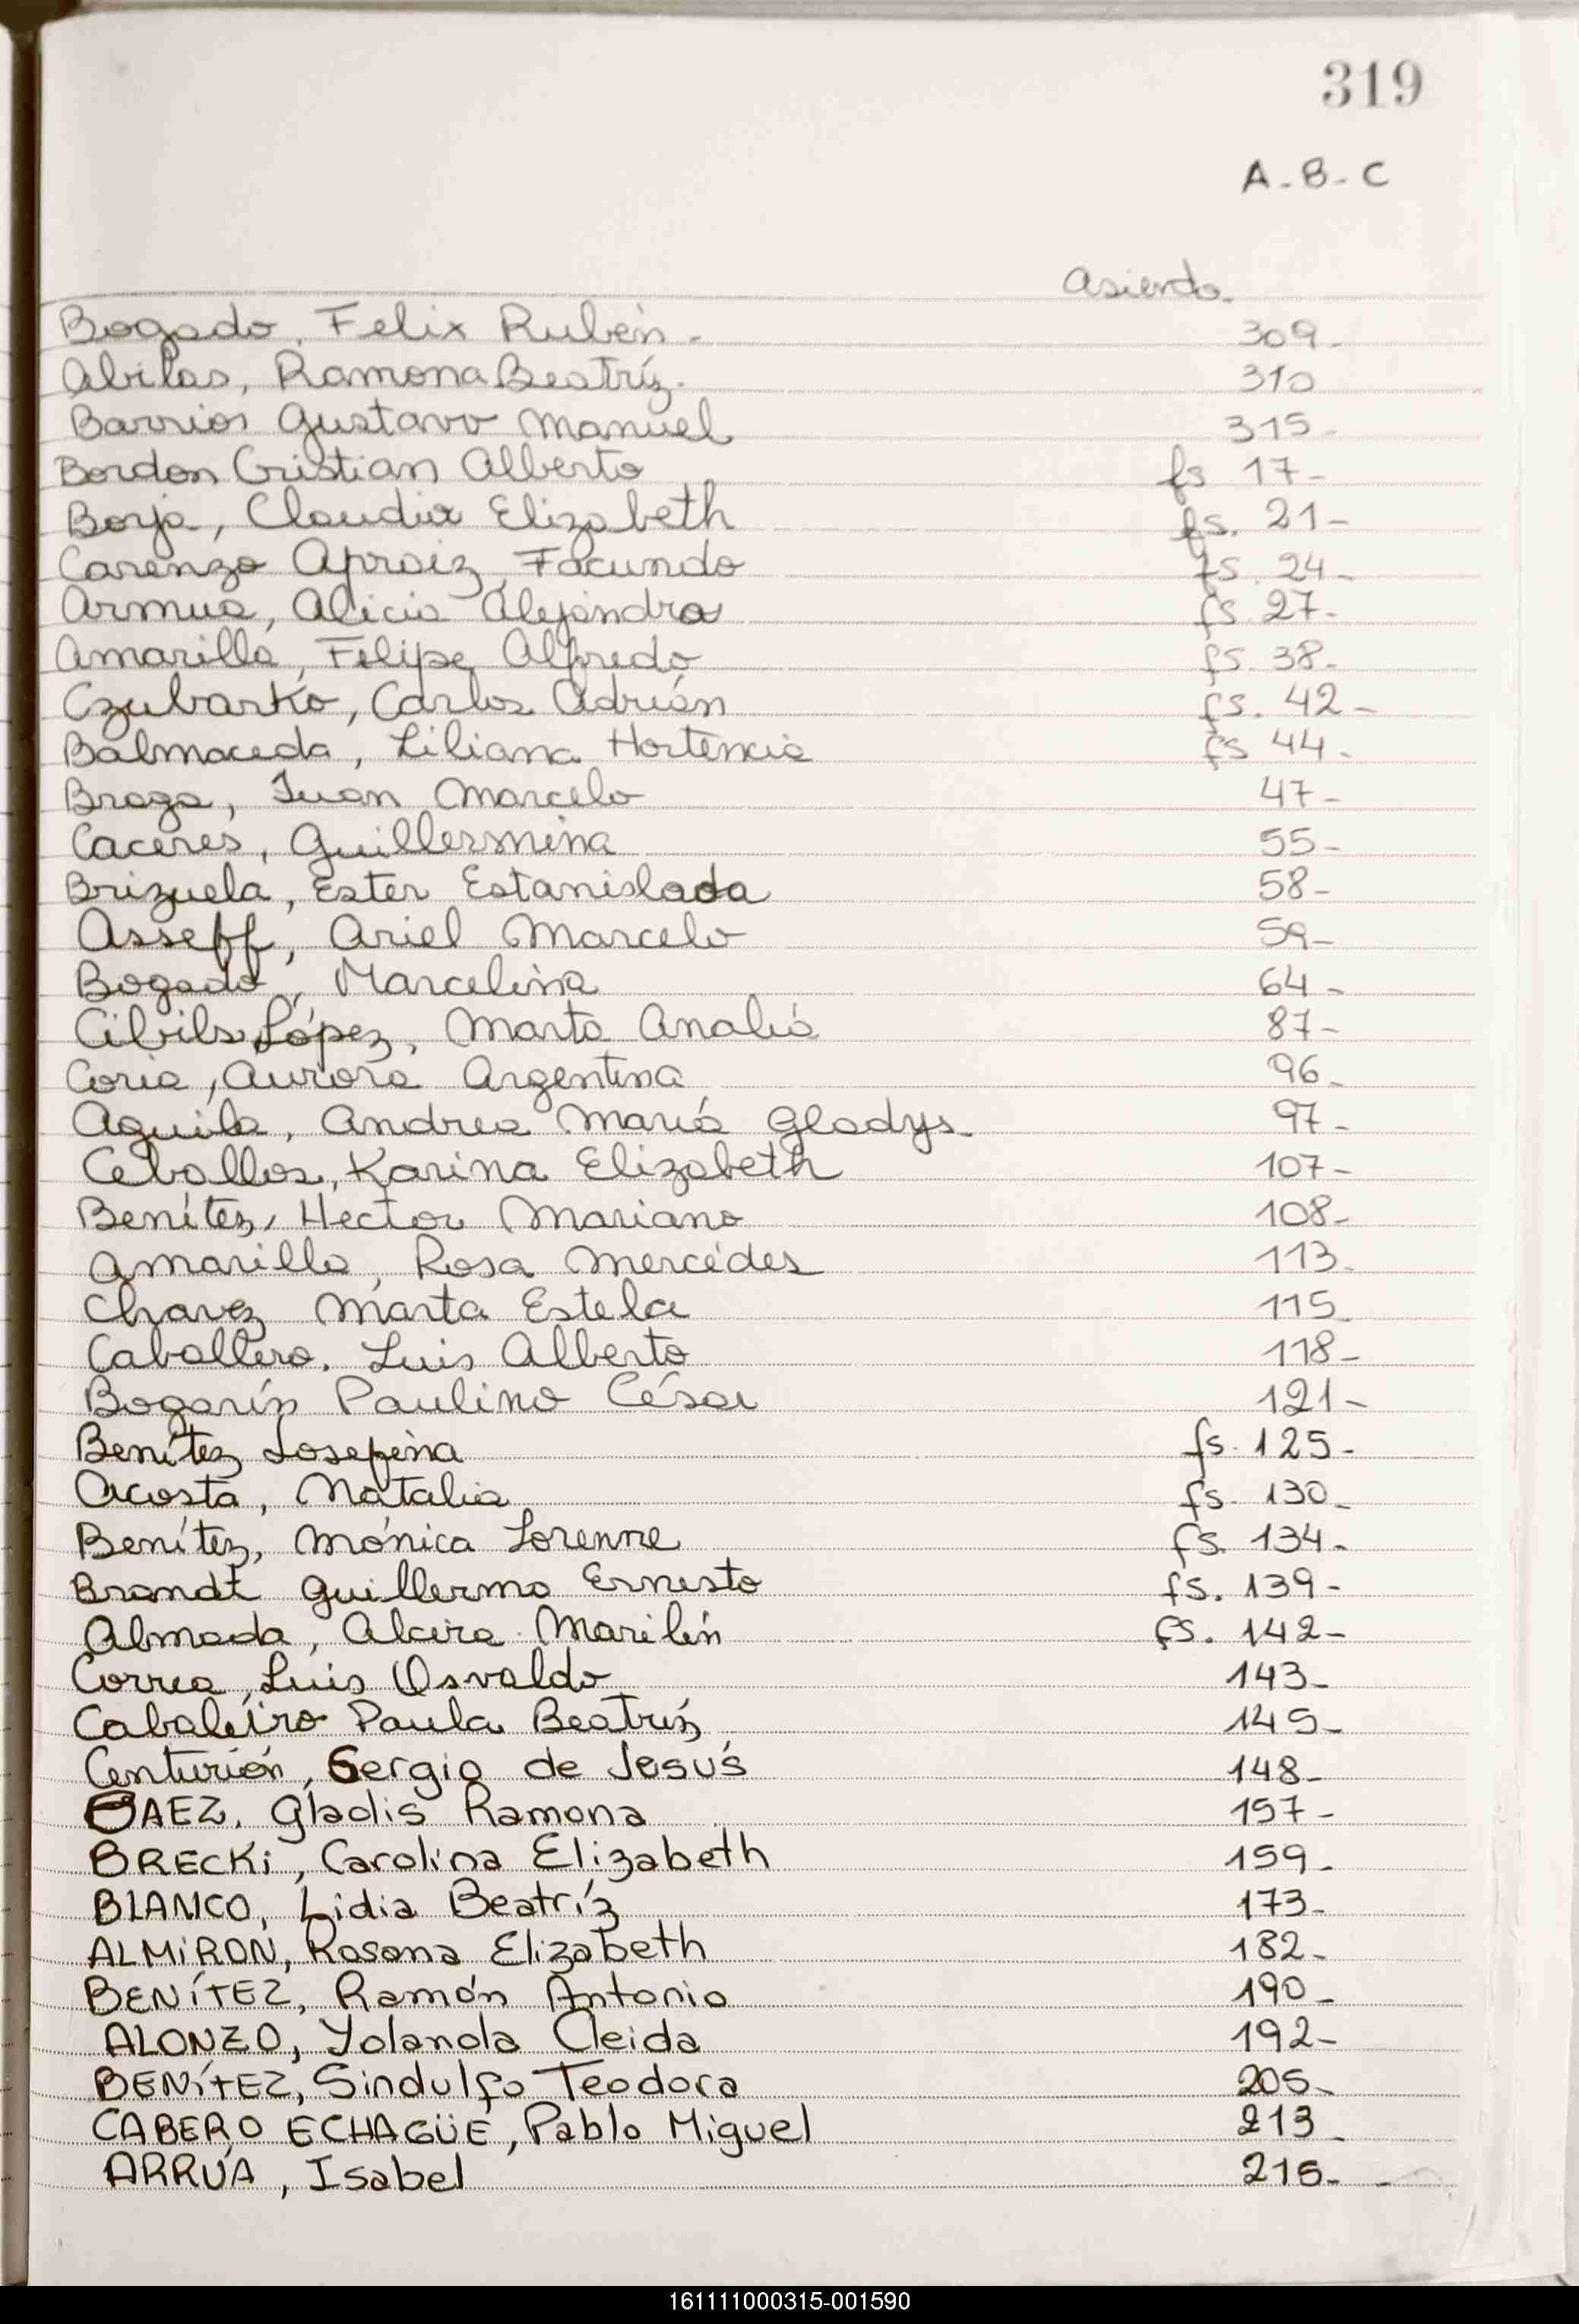 319
A-B-C
Asiento.
Bogado, Felix Rubén. 309-
Abilas, Ramona Beatríz. 310
Barrios Gustavo Manuel 315-
Bordon Cristian Alberto fs 17-
Borja, Claudia Elizabeth fs. 21-
Carenzo Apraiz, Facundo fs. 24-
Armua, Alicia Alejandra fs. 27-
Amarilla, Felipe Alfredo fs. 38-
Czubarko, Carlos Adrián fs. 42-
Balmaceda, Liliana Hortencia fs 44-
Braga, Juan Marcelo 47-
Caceres, Guillermina 55-
Brizuela, Ester Estanislada 58-
Asseff, Ariel Marcelo 59-
Bogado, Marcelina 64-
Cibils López, Marta Analía 87-
Coria, Aurora Argentina 96-
Aguila, Andrea María Gladys- 97-
Ceballos, Karina Elizabeth 107-
Benítez, Hector Mariano 108-
Amarilla, Rosa Mercedes 113-
Chavez Marta Estela 115
Caballero. Luis Alberto 118-
Bogarín Paulino César 121-
Benítez Josefina fs. 125-
Acosta, Natalia fs. 130-
Benítez, Mónica Lorenne fs. 134-
Brandt Guillermo Ernesto fs. 139-
Almada, Alcira Marilín fs. 142-
Correa, Luis Osvaldo 143-
Cabaleiro Paula Beatríz 145-
Centurión, Sergio de Jesús 148-
BAEZ, Gladis Ramona 157-
BRECKi, Carolina Elizabeth 159-
BLANCO, Lidia Beatríz 173-
ALMiRON, Rosana Elizabeth 182-
BENíTEZ, Ramón Antonio 190-
ALONZO, Yolanda Cleida 192-
BENíTEZ, Sindulfo Teodora 205-
CABERO ECHAGÜE, Pablo Miguel 213-
ARRÚA, Isabel 215-
161111000315-001590